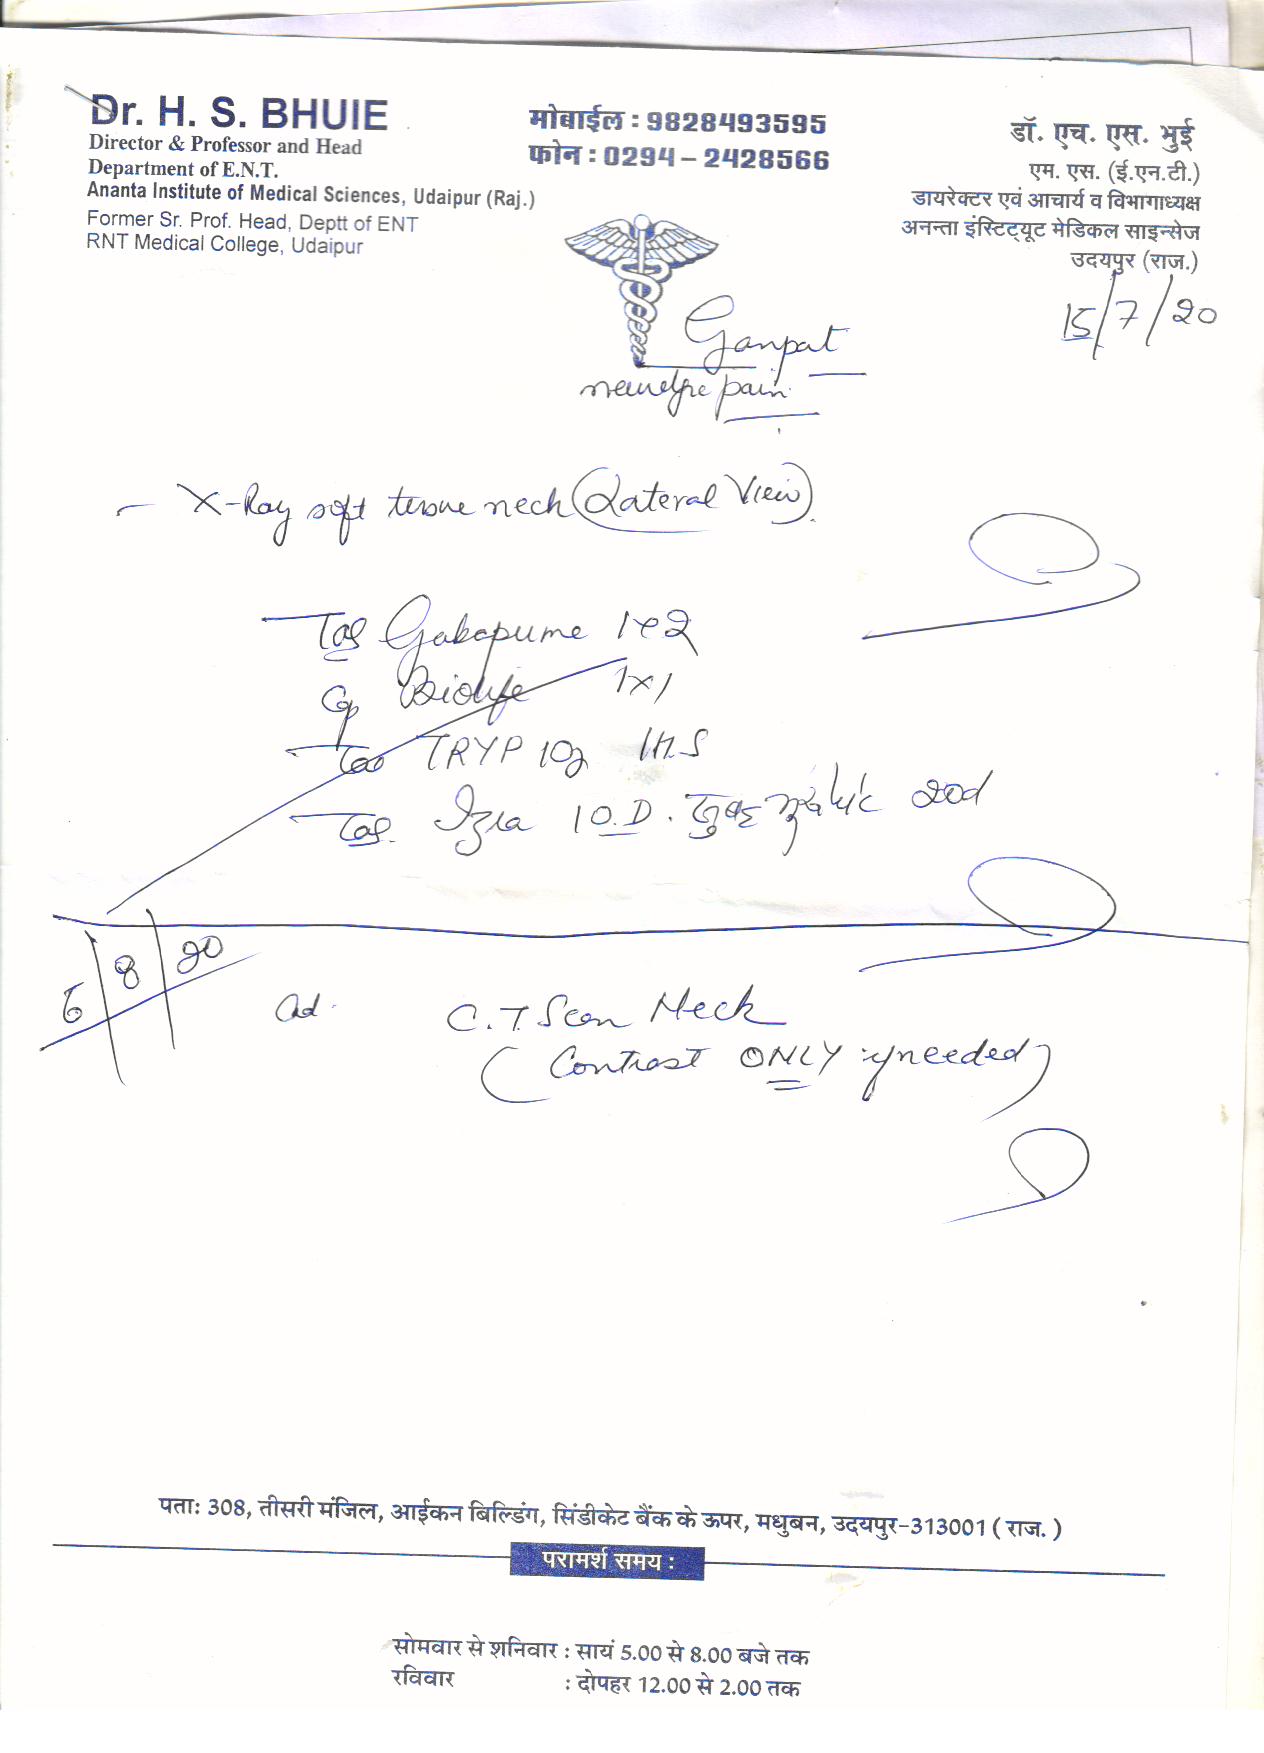 Dr. H. S. BHUIE
Director & Professor and Head
Department of E.N.T.
Ananta Institute of Medical Sciences, Udaipur (Raj.)
Former Sr. Prof. Head, Deptt of ENT
RNT Medical College, Udaipur
मोबाईल : 9828493595
फोन : 0294 – 2428566
डॉ. एच. एस. भुई
एम. एस. (ई.एन.टी.)
डायरेक्टर एवं आचार्य व विभागाध्यक्ष
अनन्ता इंस्टिट्यूट मेडिकल साइन्सेज
उदयपुर (राज.)
15/7/20
Ganpat
pain
- X-Ray soft tissue neck (Lateral View)
Tab 1 x 2
Cap Biolife 1x1
Tab TRYP 10g 1H.S
Tab. Izra 1 O.D. 20d
6 8 20
Ad. C.T. Scan Neck
(Contrast ONLY if needed)
पता: 308, तीसरी मंजिल, आईकन बिल्डिंग, सिंडीकेट बैंक के ऊपर, मधुबन, उदयपुर-313001 ( राज. )
परामर्श समय :
सोमवार से शनिवार : सायं 5.00 से 8.00 बजे तक
रविवार : दोपहर 12.00 से 2.00 तक